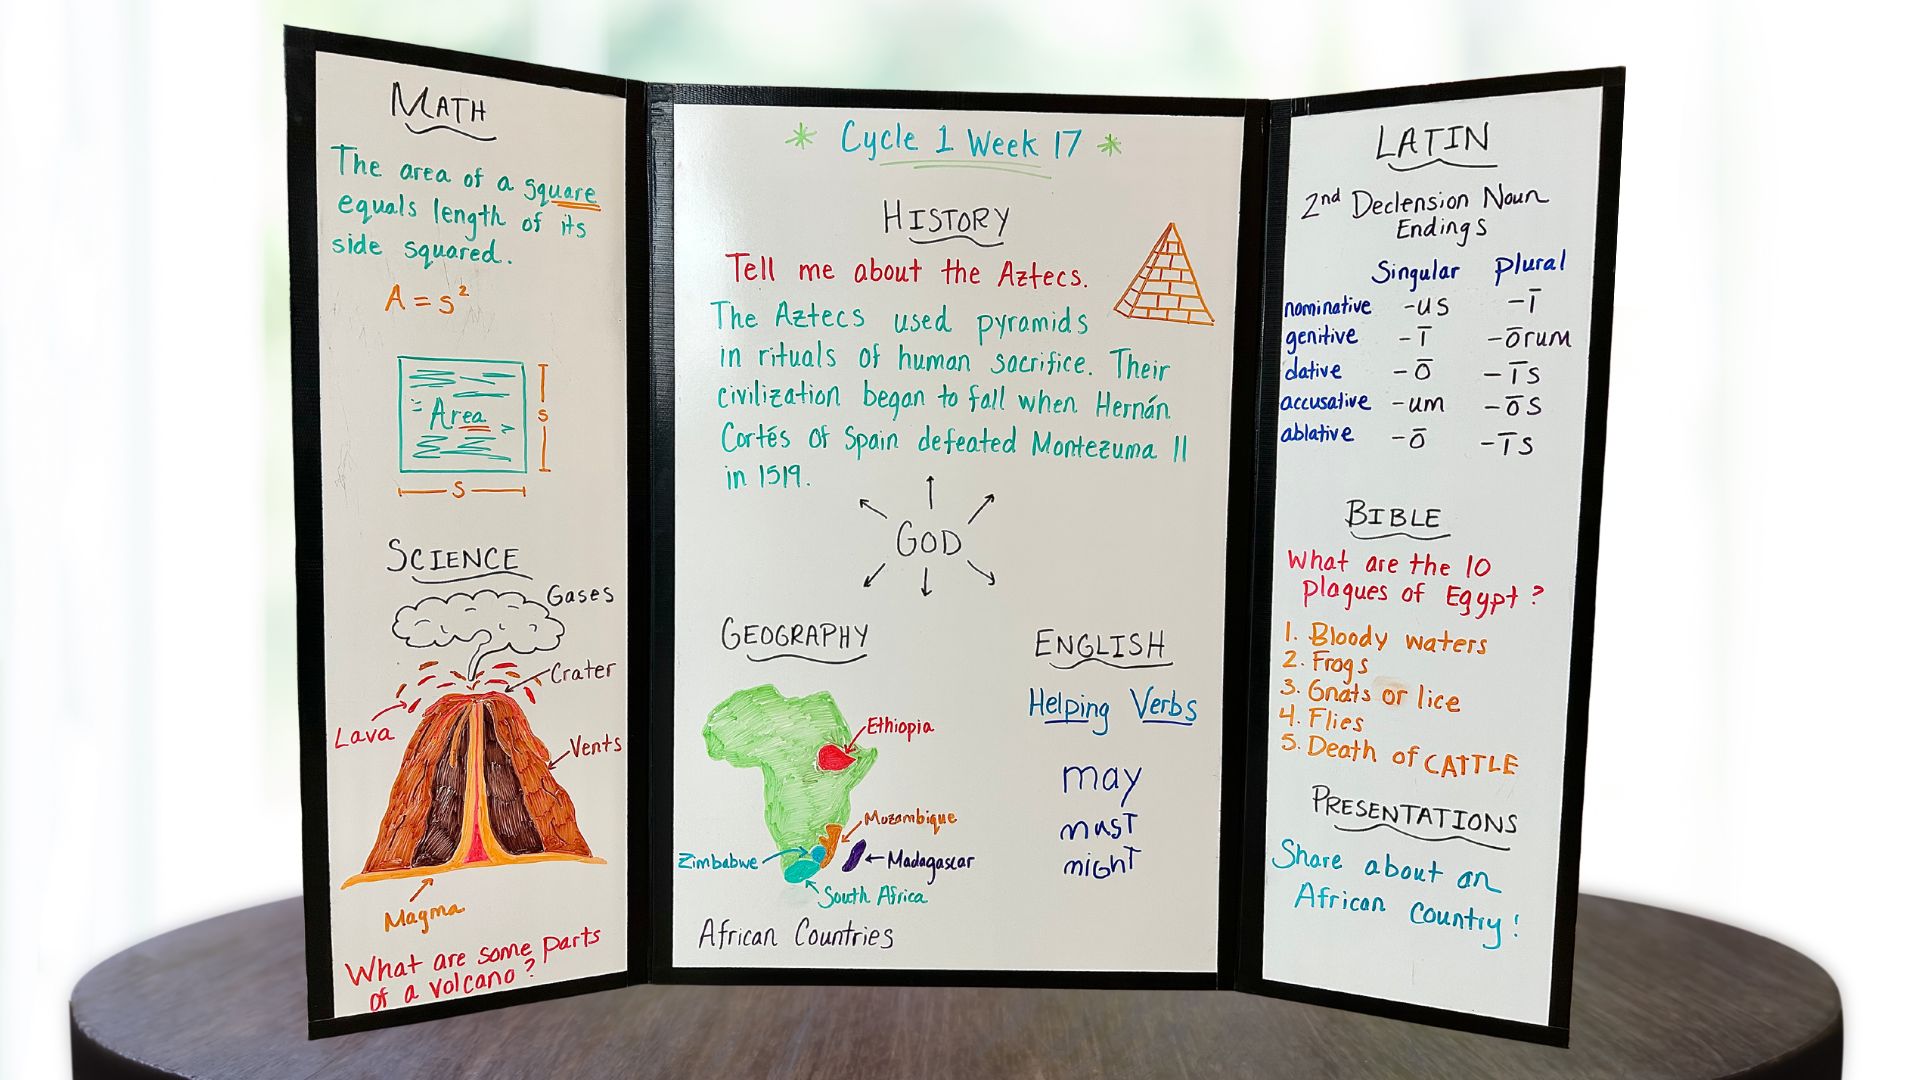 MATH
The area of a square
equals length of its
side squared.
A = s²
Area
s
s
SCIENCE
Gases
Crater
Lava
Vents
Magma
What are some parts
of a volcano?
* Cycle 1 Week 17 *
HISTORY
Tell me about the Aztecs.
The Aztecs used pyramids
in rituals of human sacrifice. Their
civilization began to fall when Hernán
Cortés of Spain defeated Montezuma II
in 1519.
GOD
GEOGRAPHY
Ethiopia
Mozambique
Zimbabwe
Madagascar
South Africa
African Countries
ENGLISH
Helping Verbs
may
must
might
LATIN
2nd Declension Noun
Endings
Singular Plural
nominative -us -ī
genitive -ī -ōrum
dative -ō -īs
accusative -um -ōs
ablative -ō -īs
BIBLE
What are the 10
plagues of Egypt?
1. Bloody waters
2. Frogs
3. Gnats or lice
4. Flies
5. Death of CATTLE
PRESENTATIONS
Share about an
African Country!